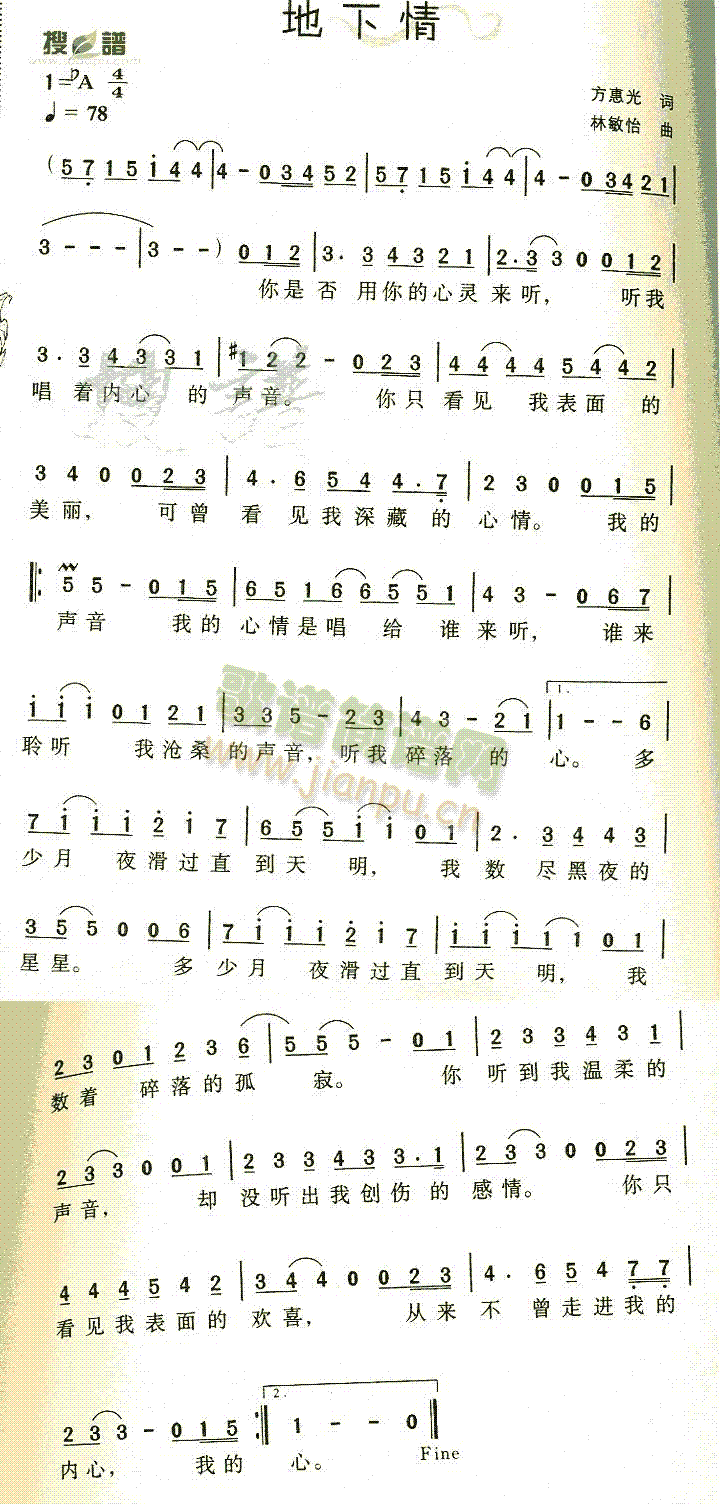 地下情
搜 谱
1=♭A 4/4
♩= 78
方惠光 词
林敏怡 曲
(5 7 1 5 i 4 4 | 4 - 0 3 4 5 2 | 5 7 1 5 i 4 4 | 4 - 0 3 4 2 1 |
3 - - - | 3 - - ) 0 1 2 | 3. 3 4 3 2 1 | 2. 3 3 0 0 0 1 2 |
你是 否 用你的心灵来听, 听我
3. 3 4 3 3 1 | #1 2 2 - 0 2 3 | 4 4 4 4 5 4 4 2 |
唱 着内心 的 声音。 你只 看见 我表面 的
3 4 0 0 2 3 | 4. 6 5 4 4. 7 | 2 3 0 0 1 5 |
美丽, 可曾 看 见我深藏 的 心情。 我的
5 5 - 0 1 5 | 6 5 1 6 6 5 5 1 | 4 3 - 0 6 7 |
声音 我的 心情是唱 给 谁来听, 谁来
i i i 0 1 2 1 | 3 3 5 - 2 3 | 4 3 - 2 1 | 1 - - 6 |
1.
聆听 我沧桑的声音, 听我碎落 的 心。 多
歌谱简谱网
www.jianpu.cn
7 i i i 2 i 7 | 6 5 5 i i 0 1 | 2. 3 4 4 3 |
少月 夜滑过直 到天 明, 我 数 尽黑夜的
3 5 5 0 0 6 | 7 i i i 2 i 7 | i i i i i 0 1 |
星星。 多 少月 夜滑过直 到天 明, 我
2 3 0 1 2 3 6 | 5 5 5 - 0 1 | 2 3 3 4 3 1 |
数着 碎落的孤 寂。 你 听到我温柔的
2 3 3 0 0 1 | 2 3 3 4 3 3. 1 | 2 3 3 0 0 2 3 |
声音, 却 没听出我创伤的 感情。 你只
4 4 4 5 4 2 | 3 4 4 0 0 2 3 | 4. 6 5 4 7 7 |
看见我表面的 欢喜, 从来 不 曾走进我的
2 3 3 - 0 1 5 :| 1 - - 0 ‖
2.
内心, 我的 心。 Fine